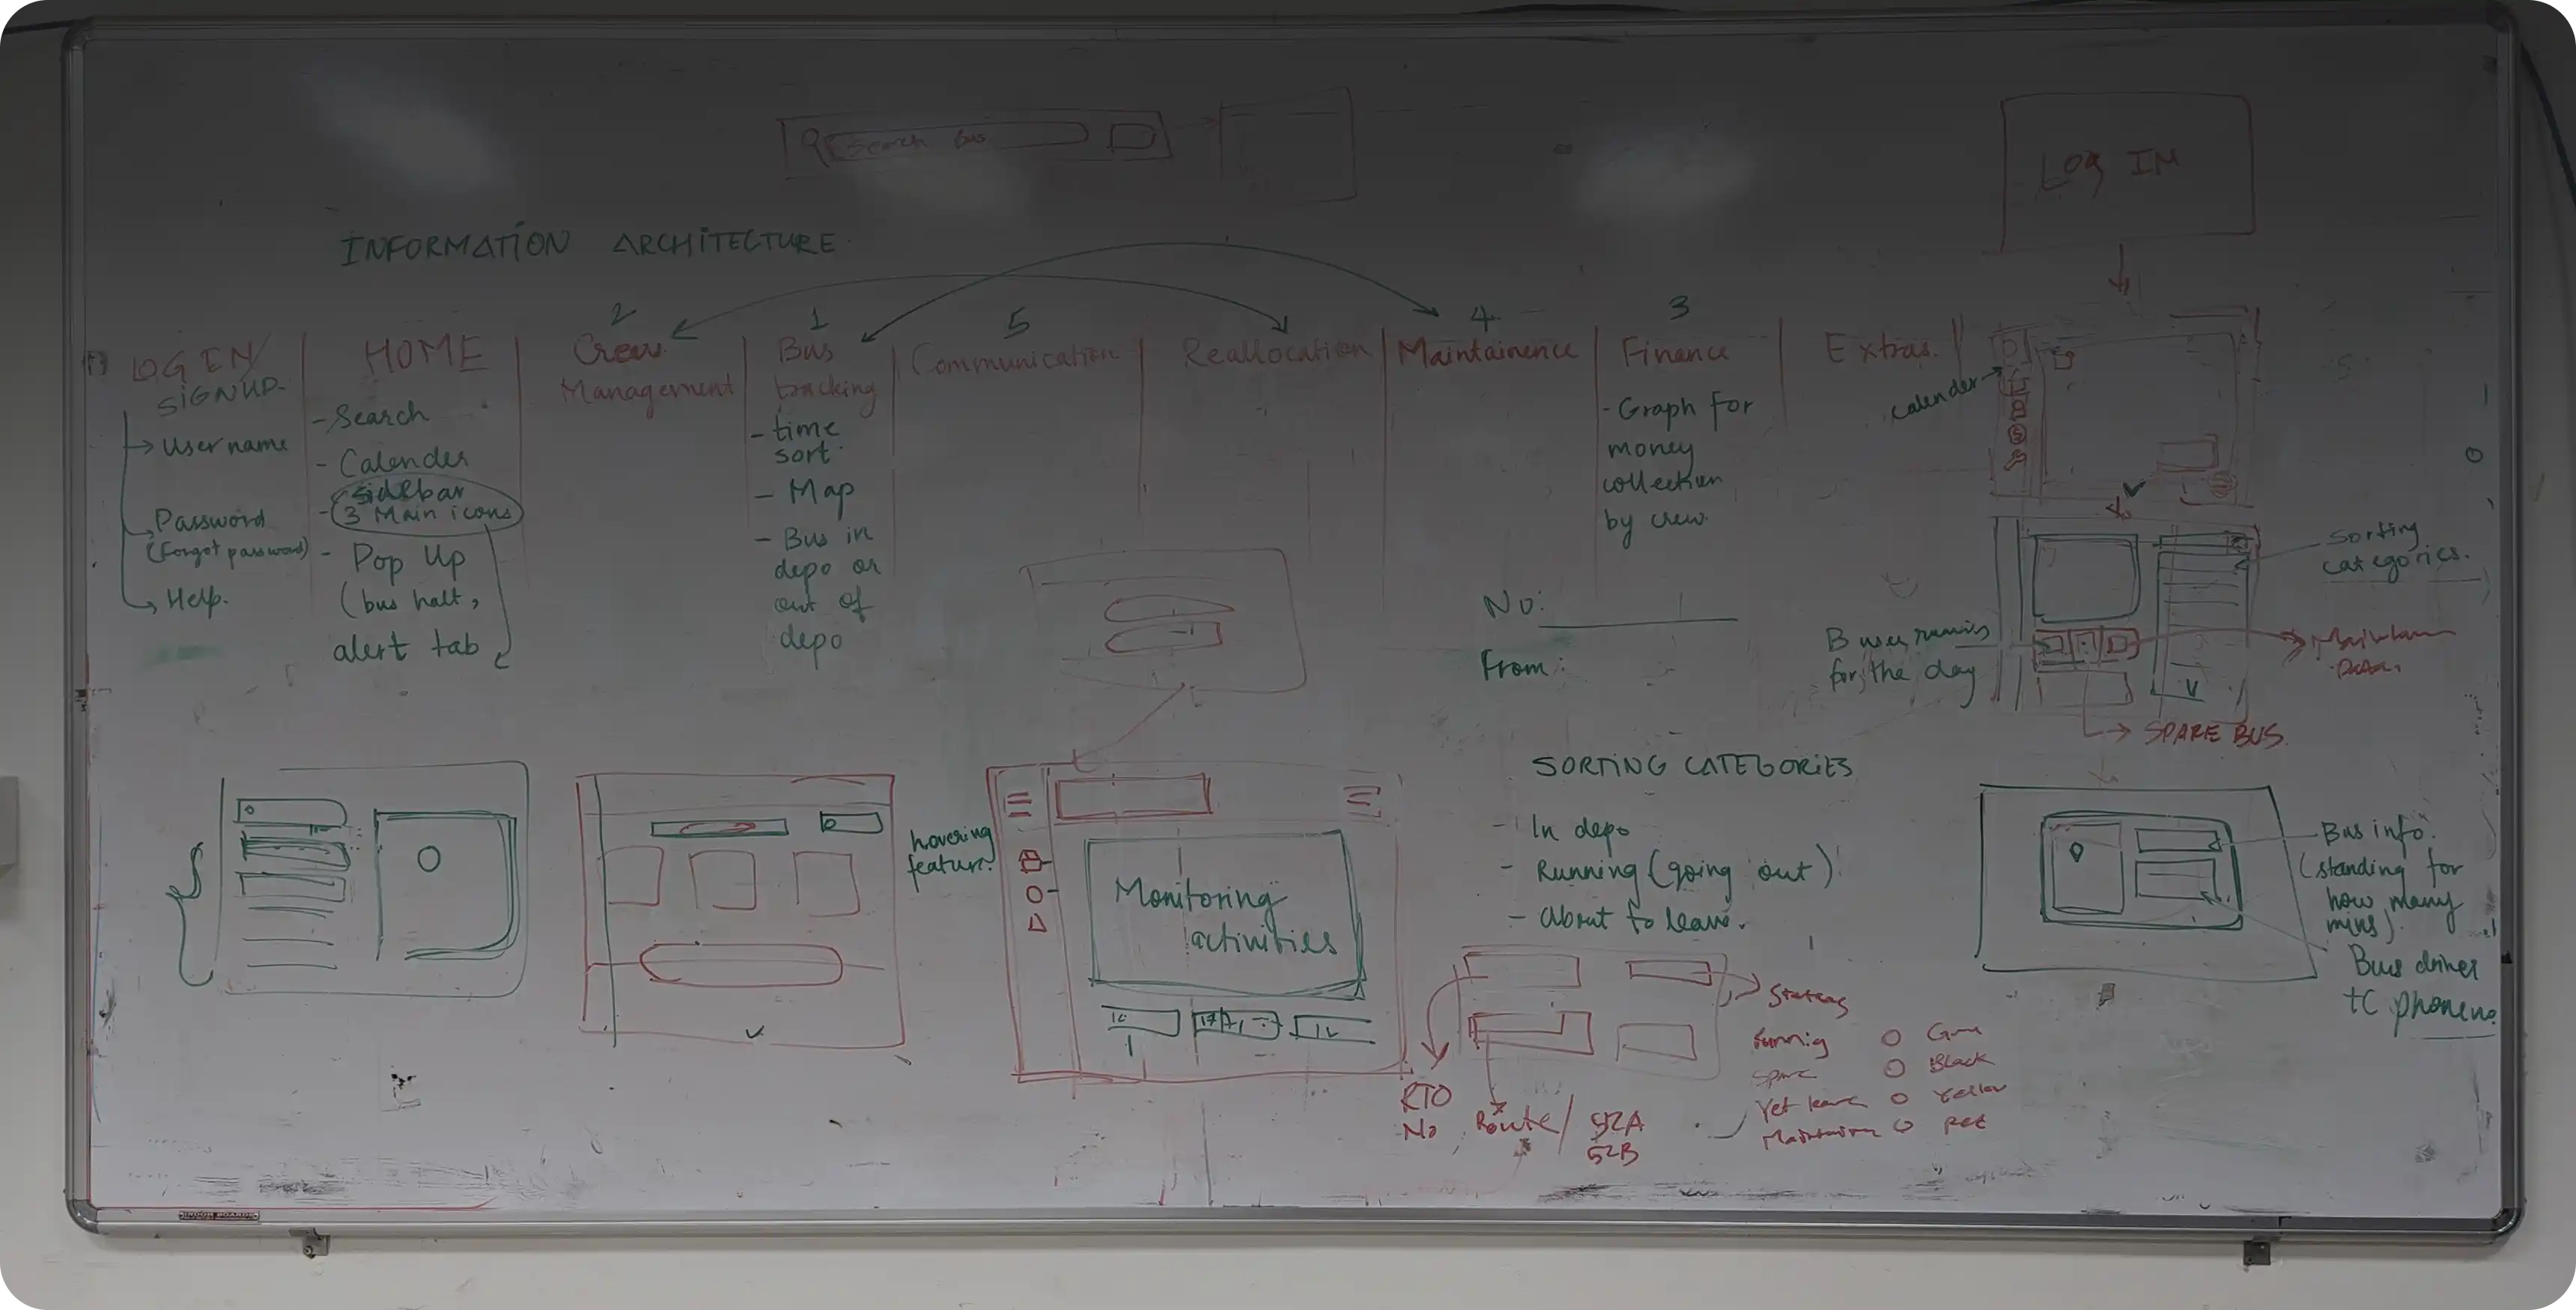 Search bus
LOG IN
INFORMATION ARCHITECTURE
2
1
5
4
3
LOG IN/
SIGNUP
→ Username
Password
(Forgot password)
→ Help.
HOME
- Search
- Calender
- Sidebar
3 Main icons
- Pop Up
(bus halt,
alert tab
Crew
Management
Bus
tracking
- time
sort
- Map
- Bus in
depo or
out of
depo
Communication
Reallocation
Maintainence
Finance
- Graph for
money
collection
by crew.
Extras.
calender
No:
From:
Sorting
categories.
for the day
→ SPARE BUS
hovering
feature.
Monitoring
activities
SORTING CATEGORIES
- In depo
- Running (going out)
- About to leave.
RTO
No
Route/ 52A
52B
Spare ○ Black
Yet leave ○ Yellow
Bus info.
(standing for
how many
mins).
Bus driver
TC phone no.